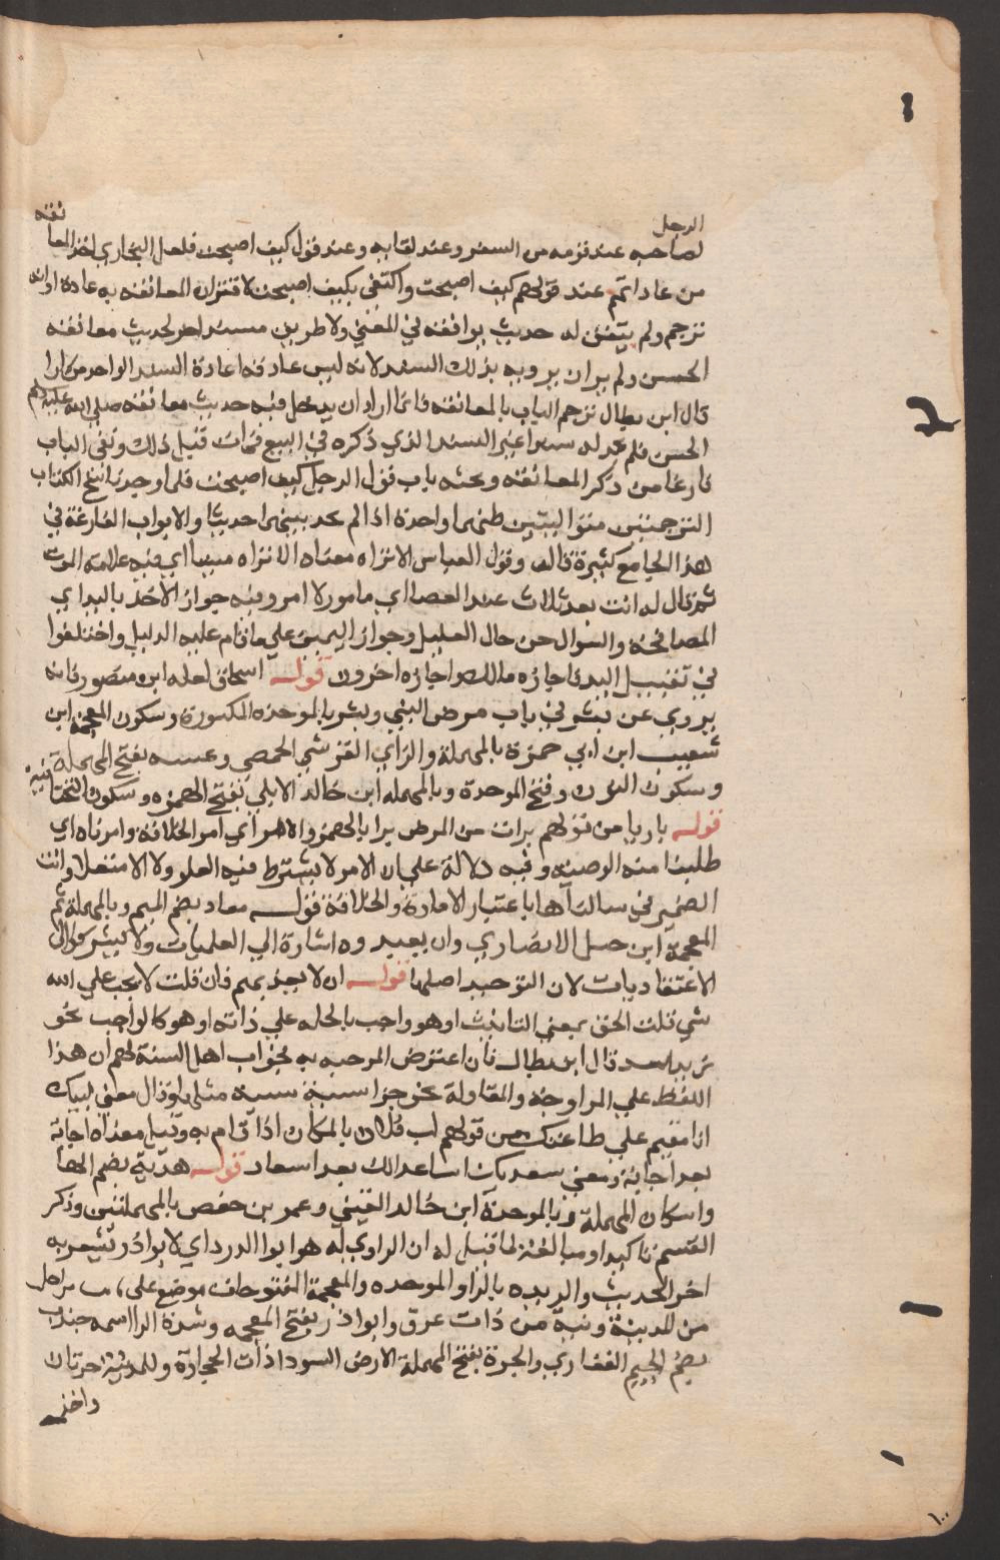 الرجل
لصاحبه عند قزمه من السفر وعند لقايه وعند قول كيف اصبحت فلعل البخاري اخذ المعا نقته
من عاداتهم عند قولهم كيف اصبحت واكتفي بكيف اصبحت لاقتران المعانقة به عادة او انه
ترجم ولم يتفق له حديث يوافقه في المعني ولا طريق مسند اخر لحديث معانقة
الحسن ولم ير ان يرويه بذلك السند لانه ليس عادته اعادة السند الواحد مرارا
قال ابن بطال ترجم الباب بالمعانقة فانما اراد ان يدخل فيه حديث معانقته صلي الله عليه وسلم
الحسن فلم يجد له سندا غير السند الذي ذكره في البيع فمات قبل ذلك وبقي الباب
فارغا من ذكر المعانقة وتحته باب قول الرجل كيف اصبحت فلما وجد ناسخ الكتاب
الترجمتين متواليتين ظنهما واحدة اذا لم يجد بينهما حديثا والابواب الفارغة في
هذا الجامع كثيرة قال وقول العباس الا تراه معناه الا تراه ميتا اي فيه علامة الموت
ثم قال له انت بعد ثلاث عبد العصا اي مامور لا امر وفيه جواز الاخذ باليد اي
المصافحة والسوال عن حال العليل وجواز اليمين علي ما قام عليه الدليل واختلفوا
في تقبيل اليد فاجازه مالك واجازه اخرون قوله اسحاق لعله ابن منصور فانه
يروي عن بشر في باب مرض النبي وبشر بالموحدة المكسورة وسكون المعجمة ابن
شعيب ابن ابي حمزة بالمهملة والزاي القرشي الحمصي وعنبسه بفتح المهملة
وسكون النون وفتح الموحدة وبالمهمله ابن خالد الايلي بفتح الهمزه وسكون التحتانية
قوله باريا من قولهم برات من المرض برا بالهمز والامر اي امر الخلافة وامرناه اي
طلبنا منه الوصية وفيه دلالة علي ان الامر لا يشترط فيه العلو ولا الاستعلا وانث
الضمير في سالناها باعتبار الامارة والخلافة قوله معاد بضم الميم وبالمهملة ثم
المعجمة ابن جبل الانصاري وان يعبدوه اشارة الي العمليات ولا يشركوا الي
الاعتقاديات لان التوحيد اصلها قوله ان لا يعذبهم فان قلت لا يجب علي الله
شي قلت الحق بمعني الثابت او هو واجب بايجابه علي ذاته او هو كالواجب نحو
زيد اسد قال ابن بطال فان اعترض المرجيه به فجواب اهل السنة لهم ان هذا
اللفظ علي المزاوجة والمقاولة نحو جزا سيئة سيئة مثلها وقال معني لبيك
انا مقيم علي طاعتك من قولهم لب فلان بالمكان اذا اقام به وقيل معناه اجابة
بعد اجابة ومعني سعديك اساعدالك بعد اسعاد قوله هدبة بضم الها
واسكان المهملة وبالموحدة ابن خالد القيني وعمر بن حفص بالمهملتين وذكر
القسم تاكيدا ومبالغة لما قيل له ان الراوي له هو ابوا الدردا اي لا ابو ذر ويشعر به
اخر الحديث والربذه بالرا والموحده والمعجمة المفتوحات موضع علي مراحل
من المدينة قريبة من ذات عرق وابو اذر بفتح المعجمه وشدة الرا اسمه جندب
بضم الجيم الغفاري والحرة بفتح المهملة الارض السودا ذات الحجارة وللمدينة حرتان
واخذ
١٠٠